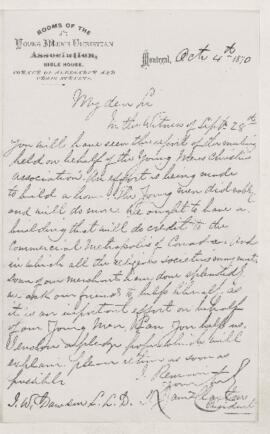 ROOMS OF THE
Young Men's Christian
Association,
BIBLE HOUSE,
CORNER OF ALEXANDER AND
CRAIG STREETS.
Montreal, Octr 4th 1870
My dear Sir
In the Witness of Sept. 28th
You will have seen the report of the meeting
held on behalf of the Young Mens Christn
Association. An effort is being made
to build a home. The Young men did nobly
and will do more. We ought to have a
building that will do credit to the
Commercial Metropolis of Canada. And
in which all the religious societies may unite
some of our merchants have done splendidly
we ask our friends to help liberally, as
it is an important effort on behalf
of our Young Men. Can you help us.
Enclosed pledge proposition will
explain. please return as soon as
possible
I Remain
Yours truly
J. W. Dawson L.L.D.
President